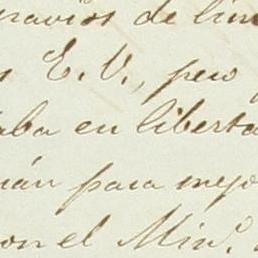 ravios de lim
s E. V., pero
aba en liberta
uán para mejo
con el Minº.